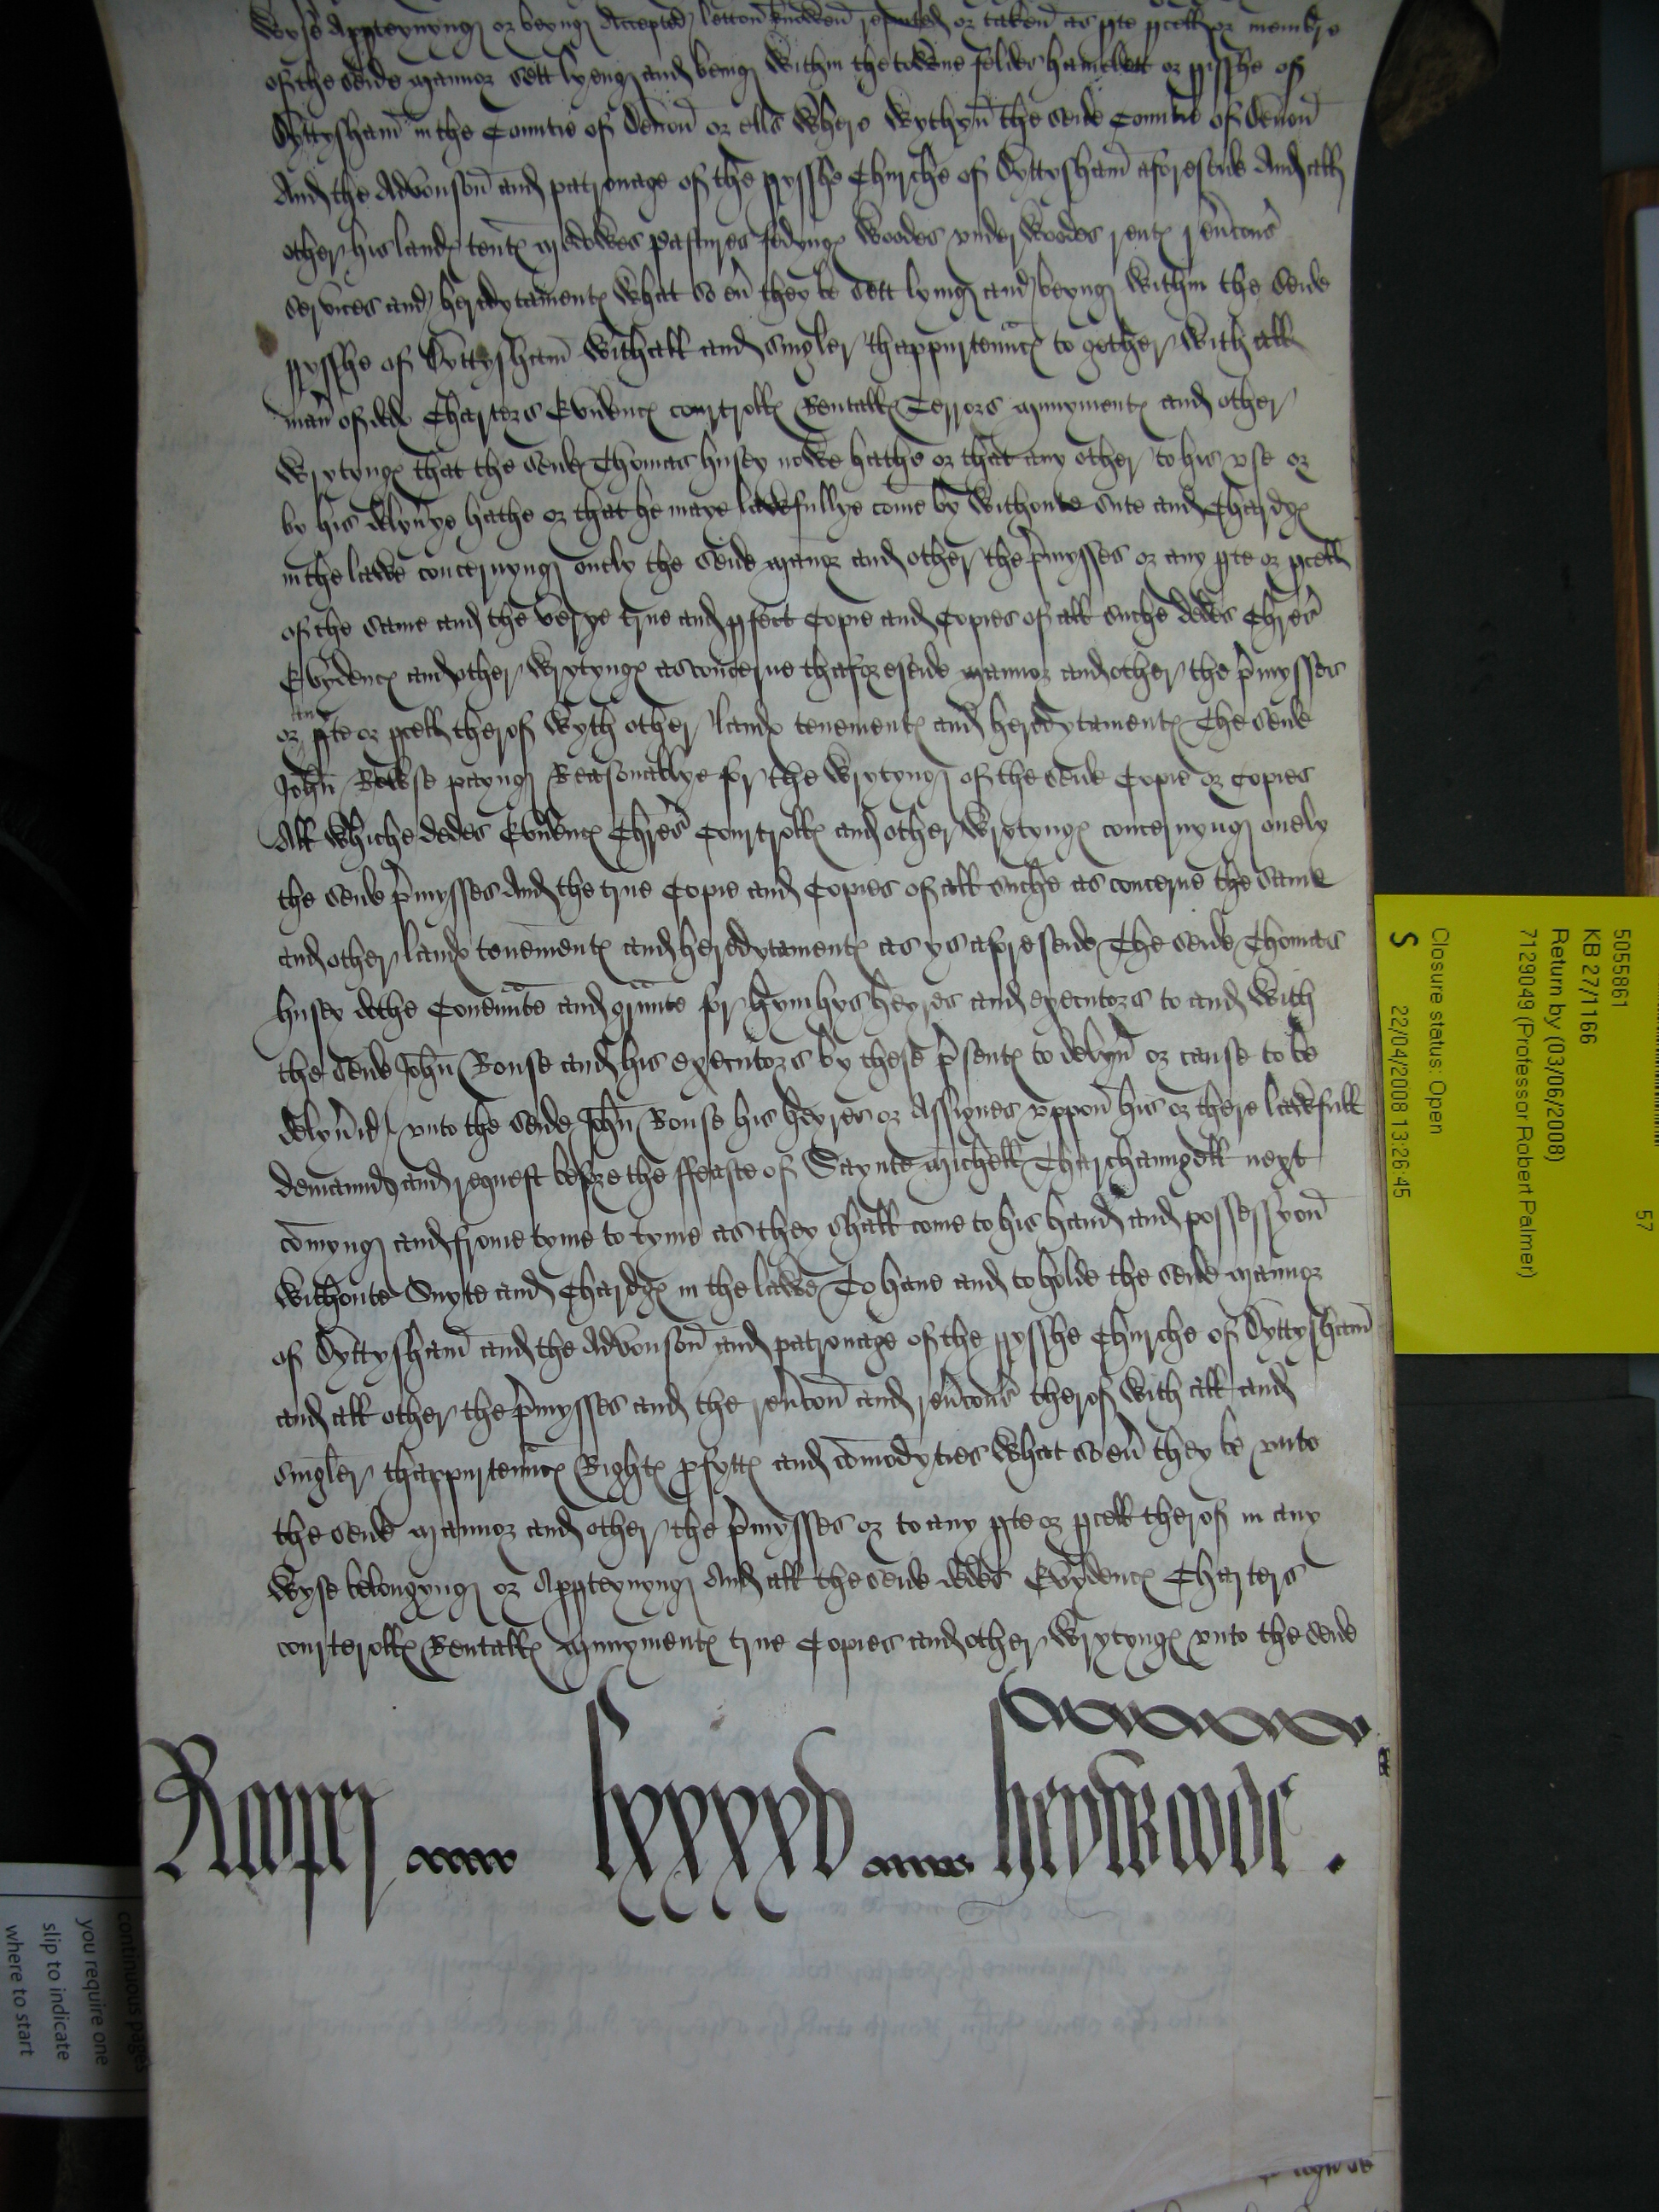 wyse Appteynyng or beyng Accepted letton knowen reputed or taken as pte pcell or membre
of the seide Mannor sett lyeng and being within the towne feldes hamelett or pisshe of
Dyttysham in the Countie of Devon or ells where wythyn the seide Countie of Devon
And the Advouson and patronage of the pysshe Churche of Dyttysham aforeseide And all
other his lands tents medowes pastures fedyngs woodes under woodes rents revcons
services and heredytaments what so ev they be sett lying and beyng within the seide
pysshe of Dyttysham with all and singler thappurtennces to gether with all
man of dedes Charters Evidences courtrolls Rentalls Terrors mynyments and other
wrytyngs that the seide Thomas husey nowe hathe or that any other to his use or
by his delyvye hathe or that he maye lawfullye come by withoute sute and Chardgs
in the lawe concernyng onely the seide manor and other the pmysses or any pte or pcell
of the same and the verye true and pfect Copie and Copies of all suche dedes Chres
Evydences and other wrytyngs as concerne thaforeseide mannor and other the pmysses
or any pte or pcell therof wyth other lands tenements and heredytaments The seide
John Rowse payng Reasonablye for the wrytyng of the seide Copie or copies
All whiche dedes Evidences Chres Courtrolls and other wrytyngs concernyng onely
the seide pmysses And the true Copie and Copies of all suche as concerne the same
and other lands tenements and heredytaments as ys afore seide The seide Thomas
husey dothe Covennte and grnnte for hym hys heyres and executors to and with
the seide John Rouse and his executors by these psents to delyv or cause to be
delyvid unto the seide John Rouse his heyres or Assignes uppon his or there lawfull
demaunde and request before the ffeaste of Saynte Michell Tharchaungell next
comyng and frome tyme to tyme as they shall come to his hands and possessyon
withoute Suyte and Chardgs in the lawe To have and to holde the seide Mannor
of Dyttysham and the Advouson and patronage of the pysshe Churche of Dyttysham
and all other the pmysses and the revcon and revcons therof with all and
singler thappurtennces Rights pfytts and comodyties what so ev they be unto
the seide mannor and other the pmysses or to any pte or pcell therof in any
wyse belongyng or Appteynyng And all the seide dedes Evydences Charters
courterolls Rentalls mynyments true Copies and other wrytyngs unto the seide
lxxxxv
5055861 57
KB 27/1166
Return by (03/06/2008)
7129049 (Professor Robert Palmer)
Closure status: Open
S 22/04/2008 13:26:45
continuous pages
you require one
slip to indicate
where to start